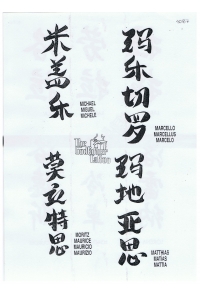 米盖乐
MICHAEL
MIGUEL
MICHELE
玛乐切罗
MARCELLO
MARCELLUS
MARCELO
The
tattoo
特思
MORITZ
MAURICE
MAURICIO
MAURIZIO
玛地亚思
MATTHIAS
MATIAS
MATTIA